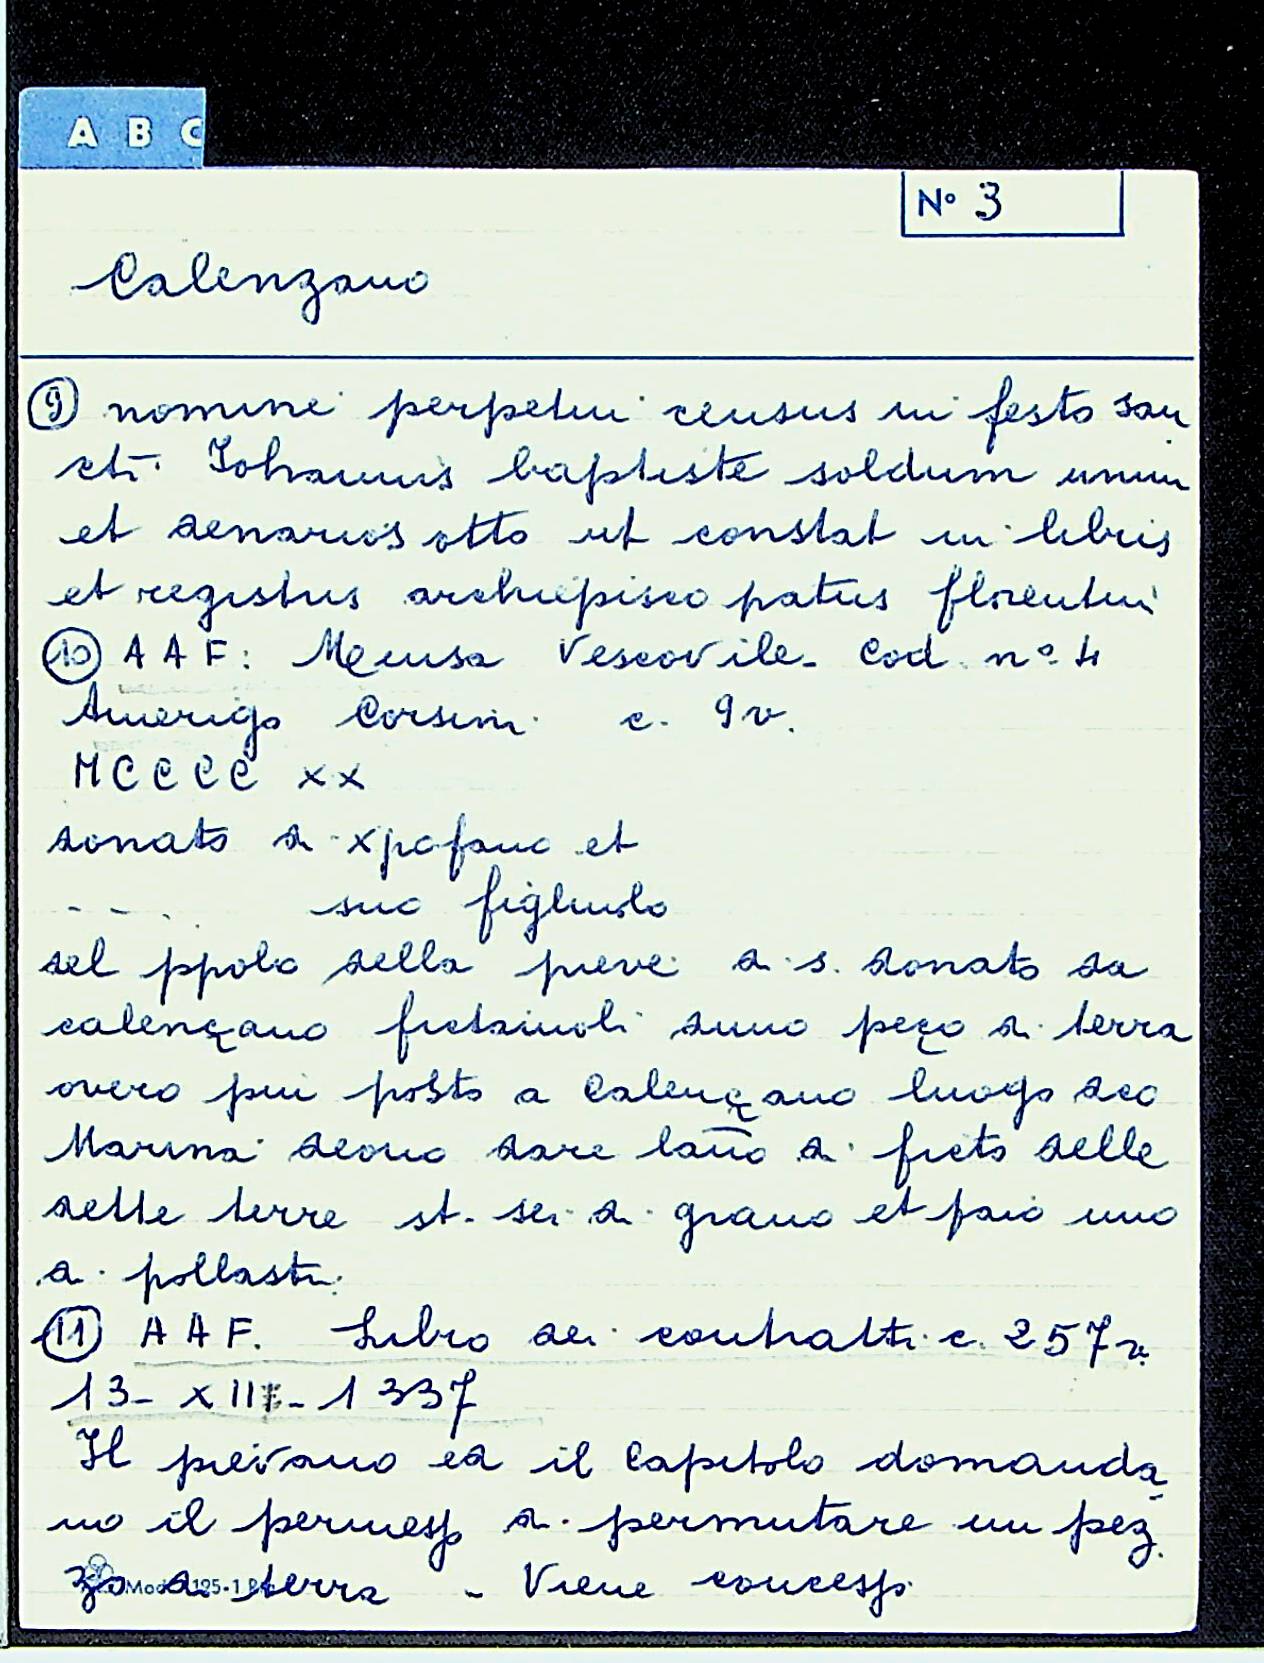 A B C
N° 3
Calenzano
⑨ nomine perpetui census in festo san
cti Iohannis baptiste soldum unum
et denarios otto ut constat in libris
et registris archiepiscopatus florentini
⑩ A A F: Mensa Vescovile. Cod. n° 4
Amerigo Corsini c. 9v.
MCCCC XX
donato di xpofano et
- - . suo figliuolo
del ppolo della pieve di s. donato da
calençano fictaiuoli duno peço di terra
overo piu posto a Calençano luogo deo
Marina deono dare lano di ficto delle
dette terre st. sei di grano et paio uno
di pollastri.
⑪ A A F. Libro dei contratti c. 257v.
13- XII - 1337
Il pievano ed il Capitolo domanda
no il permesso di permutare un pez
zo di terra - Viene concesso
Mod. 125-1